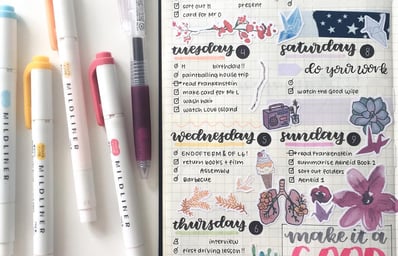 MILDLINER
MILDLINER
MILDLINER
MILDLINER
sort out !! present
card for Mr D
tuesday 4
H birthday!!
paintballing house trip
read frankenstein
make card for Mr L
wash hair
watch Love Island
wednesday 5
END OF TERM & OF L6!
return books + film
Assembly
Barbecue
thursday 6
interview
first driving lesson!!
saturday 8
do your work
watch the Good Wife
sunday 9
read frankenstein
summarise Aeneid Book 2
sort out folders
Aeneid 1
make it a
GOOD